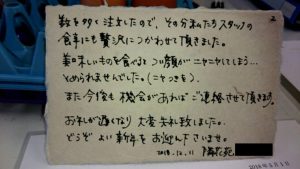 2
数を多く注文したので、その分私たちスタッフの
食事にも贅沢につかわせて頂きました。
美味しいものを食べるとつい顔がニヤニヤしてしまう…
とめられませんでした。(ニヤつきも)
また今後も機会があればご連絡させて頂きます。
お礼が遅くなり大変失礼致しました。
どうぞよい新年をお迎え下さいませ。
2018.12.11
2018年5月1日